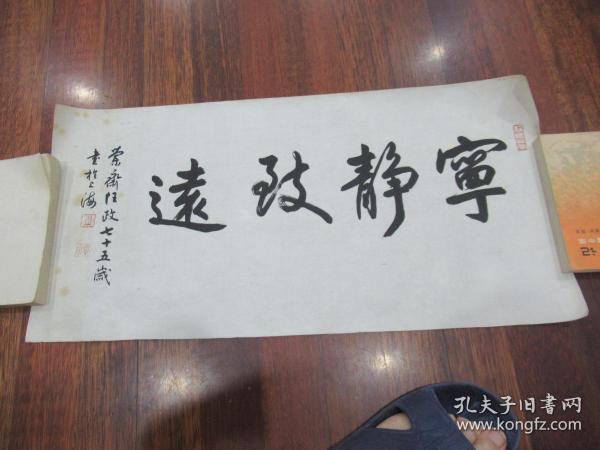 寧靜致遠
荣齋任政七十五歲
書於上海
记
孔夫子旧书网
www.kongfz.com